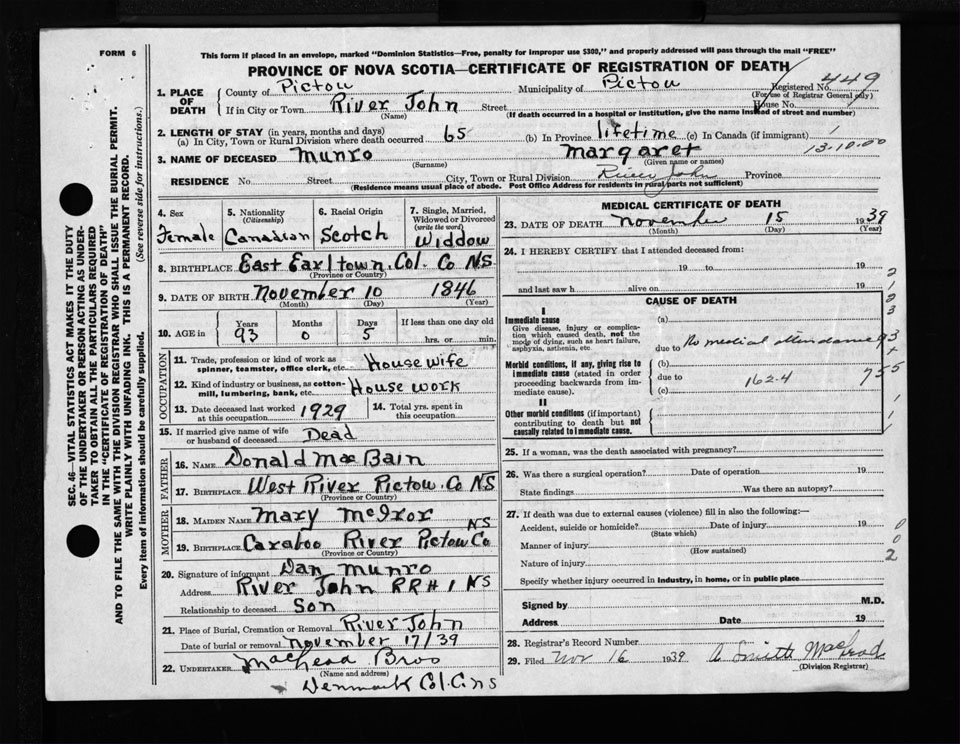 FORM 6
This form if placed in an envelope, marked "Dominion Statistics—Free, penalty for improper use $300," and properly addressed will pass through the mail "FREE"
PROVINCE OF NOVA SCOTIA—CERTIFICATE OF REGISTRATION OF DEATH
1. PLACE OF DEATH
County of Pictou Municipality of Pictou Registered No. 449
(For use of Registrar General only)
If in City or Town River John Street House No.
(Name) (If death occurred in a hospital or institution, give the name instead of street and number)
2. LENGTH OF STAY (in years, months and days)
(a) In City, Town or Rural Division where death occurred 65 (b) In Province lifetime (c) In Canada (if immigrant)
13-10-00
3. NAME OF DECEASED Munro Margaret
(Surname) (Given name or names)
RESIDENCE No. Street City, Town or Rural Division River John Province
(Residence means usual place of abode. Post Office Address for residents in rural parts not sufficient)
4. Sex
Female
5. Nationality
(Citizenship)
Canadian
6. Racial Origin
Scotch
7. Single, Married, Widowed or Divorced
(write the word)
Widdow
8. BIRTHPLACE East Earltown. Col. Co NS
(Province or Country)
9. DATE OF BIRTH November 10 1846
(Month) (Day) (Year)
10. AGE in Years Months Days If less than one day old
93 0 5 hrs. or min.
OCCUPATION
11. Trade, profession or kind of work as
spinner, teamster, office clerk, etc. Housewife
12. Kind of industry or business, as cotton-
mill, lumbering, bank, etc. House work
13. Date deceased last worked
at this occupation 1929
14. Total yrs. spent in
this occupation
15. If married give name of wife
or husband of deceased Dead
FATHER
16. NAME Donald MacBain
17. BIRTHPLACE West River Pictou. Co NS
(Province or Country)
MOTHER
18. MAIDEN NAME Mary McIvor
NS
19. BIRTHPLACE Caraboo River Pictou Co
(Province or Country)
20. Signature of informant Dan Munro
Address River John RR#1 NS
Relationship to deceased Son
21. Place of Burial, Cremation or Removal River John
Date of burial or removal November 17/39
22. UNDERTAKER Bros
(Name and address)
Denmark Col. Co NS
MEDICAL CERTIFICATE OF DEATH
23. DATE OF DEATH November 15 1939
(Month) (Day) (Year)
24. I HEREBY CERTIFY that I attended deceased from:
19 to 19
and last saw h alive on 19
CAUSE OF DEATH
I
Immediate cause
Give disease, injury or complica-
tion which caused death, not the
mode of dying, such as heart failure,
asphyxia, asthenia, etc.
(a)
due to No medical attendance
Morbid conditions, if any, giving rise to
immediate cause (stated in order
proceeding backwards from im-
mediate cause).
(b)
due to 162-4
(c)
II
Other morbid conditions (if important)
contributing to death but not
causally related to immediate cause.
2
1
2
3
93
+
755
1
1
1
25. If a woman, was the death associated with pregnancy?
26. Was there a surgical operation? Date of operation 19
State findings Was there an autopsy?
27. If death was due to external causes (violence) fill in also the following:—
Accident, suicide or homicide? Date of injury 19
(State which)
Manner of injury
(How sustained)
Nature of injury
0
0
2
Specify whether injury occurred in industry, in home, or in public place
Signed by M.D.
Address Date 19
28. Registrar's Record Number
29. Filed Nov 16 1939 A Smith MacLeod
(Division Registrar)
SEC. 46—VITAL STATISTICS ACT MAKES IT THE DUTY
OF THE UNDERTAKER OR PERSON ACTING AS UNDER-
TAKER TO OBTAIN ALL THE PARTICULARS REQUIRED
IN THE "CERTIFICATE OF REGISTRATION OF DEATH"
AND TO FILE THE SAME WITH THE DIVISION REGISTRAR WHO SHALL ISSUE THE BURIAL PERMIT.
WRITE PLAINLY WITH UNFADING INK. THIS IS A PERMANENT RECORD.
Every item of information should be carefully supplied. (See reverse side for instructions.)